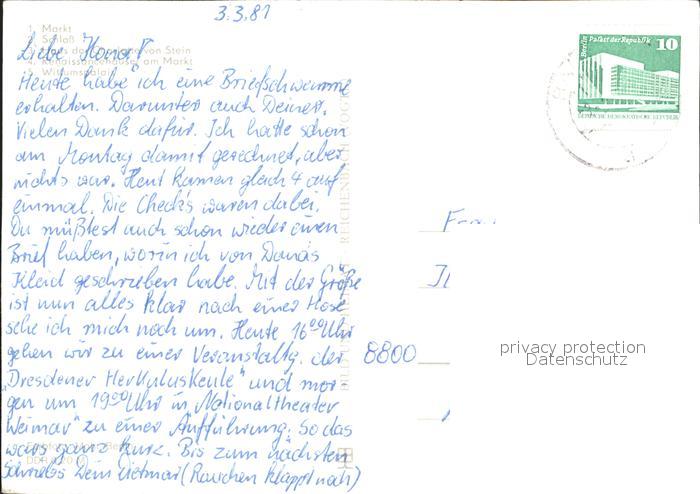 3.3.81
1. Markt
2. Schloß
3. Haus der Charlotte von Stein
4. Renaissancehäuser am Markt
5. Wittumspalais
Liebe
Heute habe ich eine Briefschwemme
erhalten. Darunter auch Deiner.
Vielen Dank dafür. Ich hatte schon
am Montag damit gerechnet, aber
nichts war. Heut kamen gleich 4 auf
einmal. Die Checks waren dabei.
Du müßtest auch schon wieder einen
Brief haben, worin ich von Danas
Kleid geschrieben habe. Mit der Größe
ist nun alles klar nach einer Hose
sehe ich mich noch um. Heute 16⁰⁰ Uhr
gehen wir zu einer Veranstaltg. der
"Dresdener Herkuleskeule" und mor
gen um 19⁰⁰ Uhr in Nationaltheater
Weimar" zu einer Aufführung. So das
wars ganz kurz. Bis zum nächsten
Schreibs Dein Dietmar (Rauchen klappt noch)
REICHENBACH (VOGTL)
Berlin Palast der Republik 10
DEUTSCHE DEMOKRATISCHE REPUBLIK
Frau
8800
privacy protection
Datenschutz